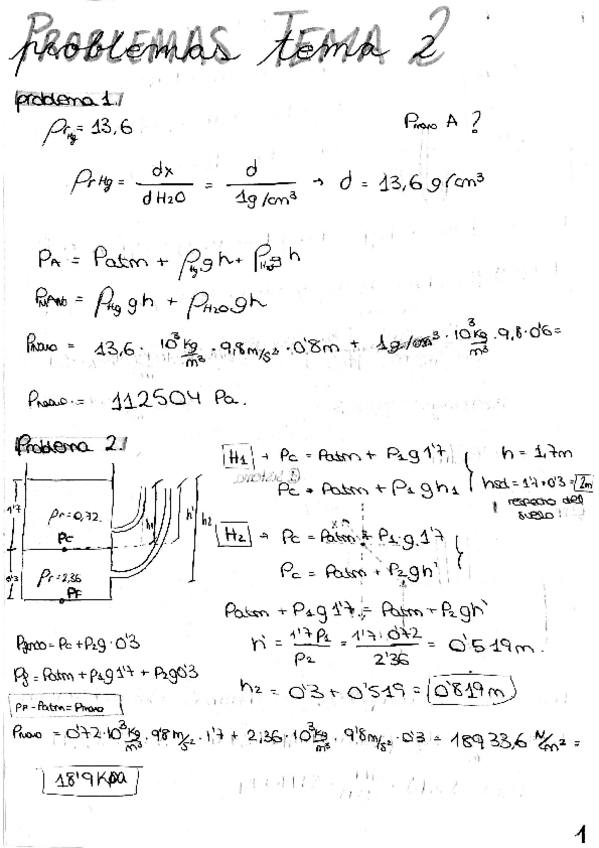 PROBLEMAS TEMA 2
problemas tema 2
problema 1./
ρr Hg = 13,6
Pmano A ?
ρr Hg = dx / dH2O = d / 1g/cm³ → d = 13,6 g/cm³
PA = Patm + ρHg g h + ρH2O g h
PMANO = ρHg g h + ρH2O g h
Pmano = 13,6 · 10³ kg/m³ · 9,8 m/s² · 0'8m + 1g/cm³ · 10³ kg/m³ · 9,8 · 0'6 =
Pmano = 112504 Pa.
Problema 2./
H1 → Pc = Patm + ρ1 g 1'7
Pc = Patm + ρ1 g h1
h = 1,7m
hsol = 1'7 + 0'3 = 2m
respecto del suelo
1'7
ρr = 0,72
Pc
h1
h'
h2
0'3
ρr = 2,36
PF
H2 → Pc = Patm + ρ1 · g · 1'7
Pc = Patm + ρ2 g h'
Patm + ρ1 g 1'7 = Patm + ρ2 g h'
h' = 1'7 ρ1 / ρ2 = 1'7 · 0'72 / 2'36 = 0'519m.
h2 = 0'3 + 0'519 = 0'819m
Pfondo = Pc + ρ2 g · 0'3
Pf = Patm + ρ1 g 1'7 + ρ2 g 0'3
PF - Patm = Pmano
Pmano = 0'72 · 10³ kg/m³ · 9'8 m/s² · 1'7 + 2,36 · 10³ kg/m³ · 9'8 m/s² · 0'3 = 18933,6 N/m² =
18'9 KPa
1